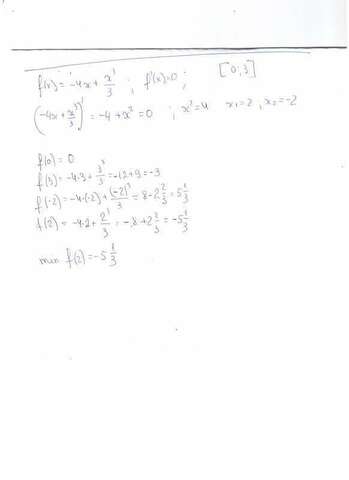 f(x) = -4x + x³/3 ; f'(x)=0 ; [0;3]
(-4x + x³/3)' = -4 + x² = 0 ; x² = 4 x₁=2, x₂=-2
f(0) = 0
f(3) = -4·3 + 3³/3 = -12+9 = -3
f(-2) = -4·(-2) + (-2)³/3 = 8 - 2 2/3 = 5 1/3
f(2) = -4·2 + 2³/3 = -8 + 2 2/3 = -5 1/3
min f(2) = -5 1/3